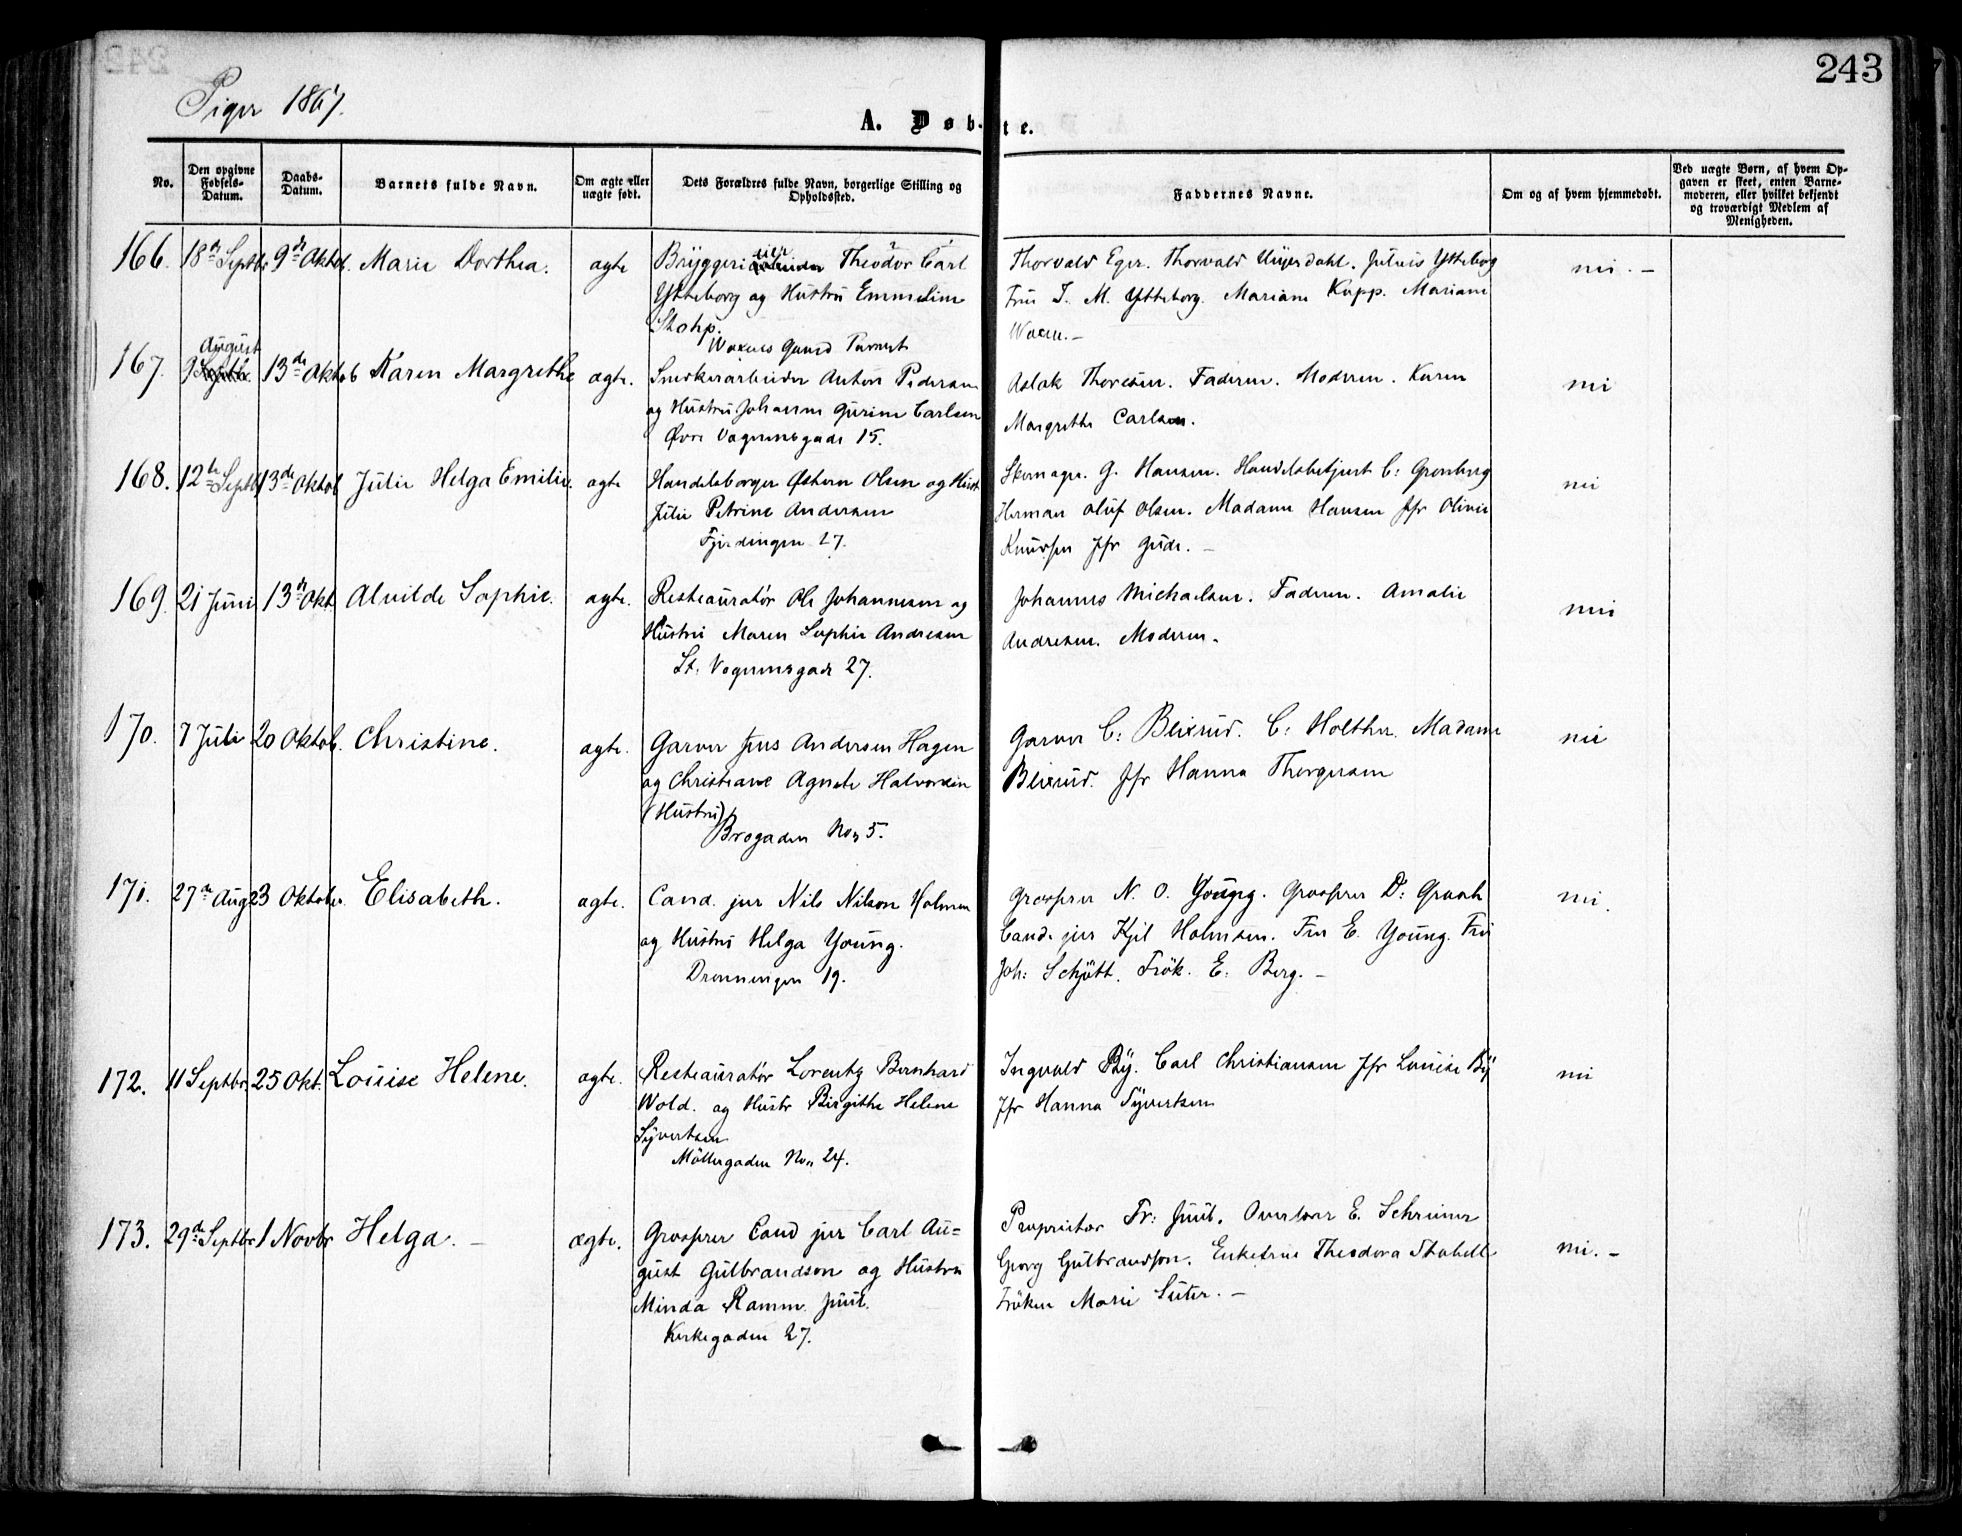 243
Piger 1867.
A. Døbte.
No. Den opgivne Fødsels-Datum. Daabs-Datum. Barnets fulde Navn. Om ægte eller uægte født. Dets Forældres fulde Navn, borgerlige Stilling og Opholdssted. Faddernes Navne. Om og af hvem hjemmedøbt. Ved uægte Børn, af hvem Opgaven er skeet, enten Barnemoderen, eller hvilket bekjendt og troværdigt Medlem af Menigheden.
166. 18de Septbr 9de Oktob. Marie Dorthea. ægte Bryggeri Theodor Carl
Ytteborg og Hustru Emmeline
Stohp.
Waxnes Gaard
Thorvald Eger. Thorvald Meyer Dahl. Julius Ytteborg
Fru J. M. Ytteborg. Mariane Kupp. Mariane
nei. –
167. 9 August 13de Oktob Karen Margrethe ægte. Snedkerarbeider Anton Pedersen
og Hustru Johanne Gurine Carlsen
Øvre Vognmsgade 15.
Aslak Thoresen. Faderen. Moderen. Karen
Margrethe Carlsen.
nei
168. 12te Septb 13de Oktob Julie Helga Emilie. ægte Handelsborger Østern Olsen og Hust
Julie Petrine Andersen
Fjerdingen 27.
Skomager G. Hansen. Handelsbetjent C: Grønberg
Herman Oluf Olsen. Madame Hansen Jfr Olivie
Knudsen Jfr Gude. –
nei
169. 21 Juni 13de Okt. Alvilde Sophie. ægte. Restauratør Ole Johannesen og
Hustru Maren Sophie Andresen
St. Vognmsgade 27.
Johannes Michaelsen. Faderen. Amalie
Andresen. Moderen.
nei
170. 7 Juli 20 Oktob. Christine. ægte. Garver Jens Andersen Hagen
og Christiane Agnete Halvorsen
(Hustru)
Brogaden No. 5.
Garver C: Blixrud. C: Holther. Madame
Blixrud. Jfr Hanna Thorgersen
nei
171. 27de Aug 23 Oktober. Elisabeth. ægte. Cand. jur Nils Nilson Holmsen
og Hustru Helga Young.
Dronningen 19.
Grosserer N. O. Young. Grosserer D: Graah
Cand. jur Kjil Holmsen. Fru E. Young. Fru
Joh: Schjøtt. Frøk. E. Berg. –
nei.
172. 11 Septbr. 25 Okt. Louise Helene. ægte. Restauratør Lorentz Bernhard
Wold. og Hustr Birgithe Helene
Syvertsen
Møllergaden No. 24.
Ingvald By. Carl Christiansen Jfr Louise By
Jfr Hanna Syvertsen
nei
173. 29de Septbr 1 Novbr Helga. – ægte. Grosserer Cand jur Carl Au=
gust Gulbrandson og Hustru
Minda Ramm Juul.
Kirkegaden 27.
Proprietær Fr: Juul. Overlærer E. Schreiner
Georg Gulbrandson. Enkefrue Theodora Stabell
Frøken Marie Suter. –
nei. –